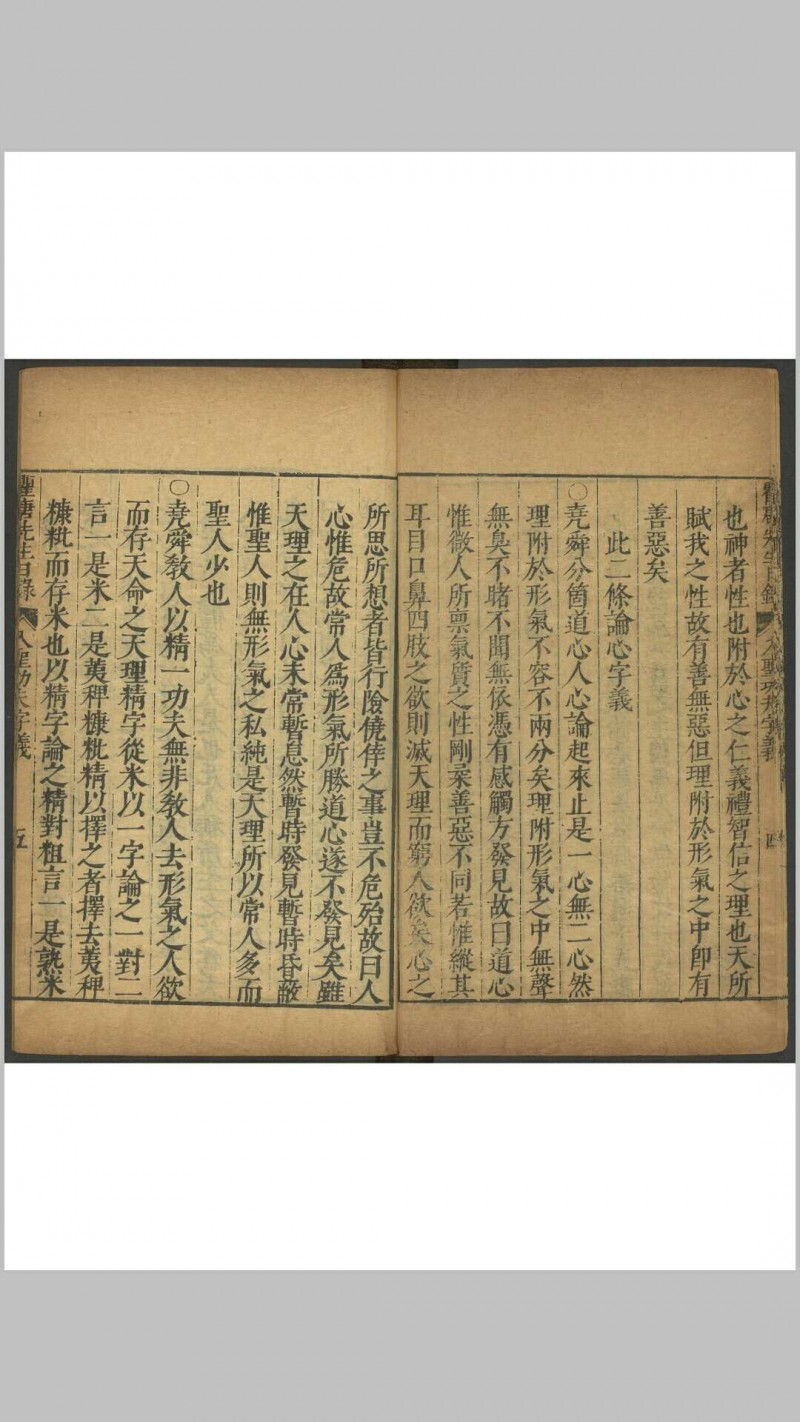 也神者性也附於心之仁義禮智信之理也天所
賦我之性故有善無惡但理附於形氣之中卽有
善惡矣
此二條論心字義
○堯舜分箇道心人心論起來止是一心無二心然
理附於形氣不容不兩分矣理附形氣之中無聲
無臭不睹不聞無依憑有感觸方發見故曰道心
惟微人所禀氣質之性剛柔善惡不同若惟縱其
耳目口鼻四肢之欲則滅天理而窮人欲矣心之
所思所想者皆行險僥倖之事豈不危殆故曰人
心惟危故常人爲形氣所勝道心遂不發見矣雖
天理之在人心未常暫息然暫時發見暫時昏蔽
惟聖人則無形氣之私純是天理所以常人多而
聖人少也
○堯舜敎人以精一功夫無非敎人去形氣之人欲
而存天命之天理精字從米以一字論之一對二
言一是米二是荑稗糠粃精以擇之者擇去荑稗
糠粃而存米也以精字論之精對粗言一是熟米
瞿塘先生日錄 入聖功夫字義 五